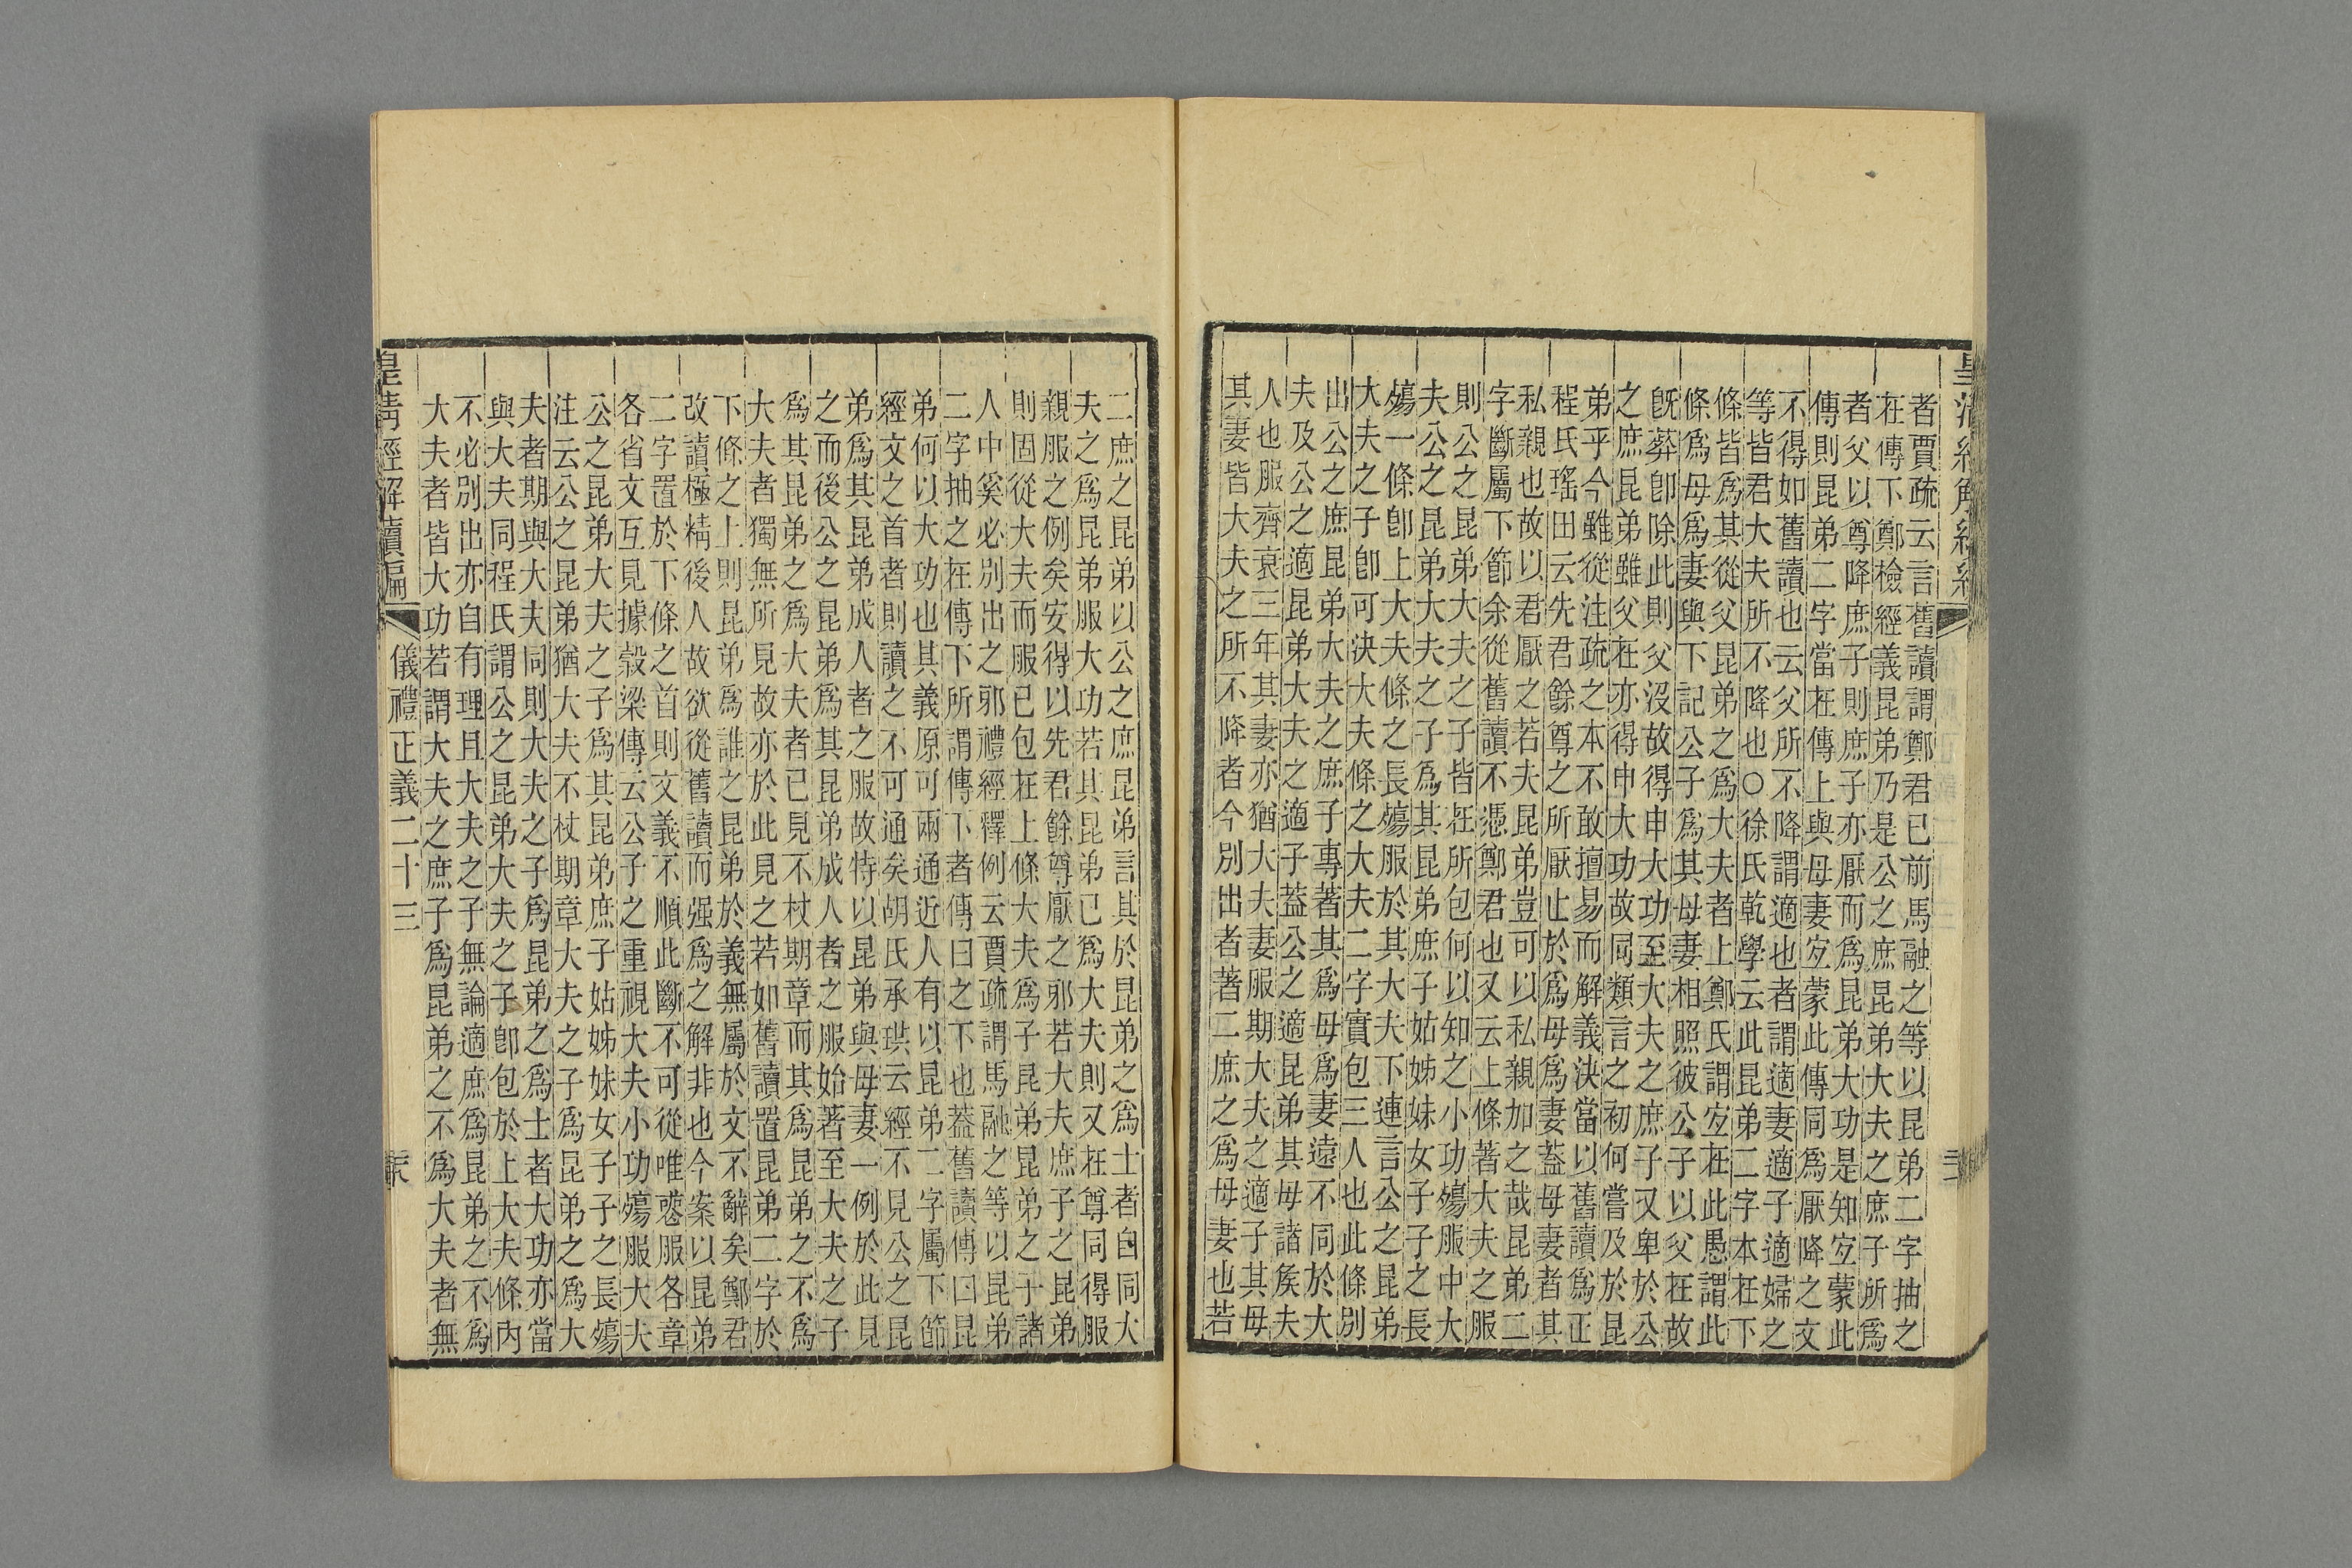 者賈疏云言舊讀謂鄭君已前馬融之等以昆弟二字抽之
在傳下鄭檢經義昆弟乃是公之庶昆弟大夫之庶子所爲
者父以尊降庶子則庶子亦厭而爲昆弟大功是知宐蒙此
傳則昆弟二字當在傳上與母妻宐蒙此傳同爲厭降之文
不得如舊讀也云父所不降謂適也者謂適妻適子適婦之
等皆君大夫所不降也〇徐氏乾學云此昆弟二字本在下
條皆爲其從父昆弟之爲大夫者上鄭氏謂宐在此愚謂此
條爲母爲妻與下記公子爲其母妻相照彼公子以父在故
旣葬卽除此則父沒故得申大功至大夫之庶子又卑於公
之庶昆弟雖父在亦得申大功故同類言之初何嘗及於昆
弟乎今雖從注疏之本不敢擅易而解義決當以舊讀爲正
程氏瑤田云先君餘尊之所厭止於爲母爲妻葢母妻者其
私親也故以君厭之若夫昆弟豈可以私親加之哉昆弟二
字斷屬下節余從舊讀不憑鄭君也又云上條著大夫之服
則公之昆弟大夫之子皆在所包何以知之小功殤服中大
夫公之昆弟大夫之子爲其昆弟庶子姑姊妹女子子之長
殤一條卽上大夫條之長殤服於其大夫下連言公之昆弟
大夫之子卽可決大夫條之大夫二字實包三人也此條別
出公之庶昆弟大夫之庶子專著其爲母爲妻遠不同於大
夫及公之適昆弟大夫之適子葢公之適昆弟其母諸矦夫
人也服齊衰三年其妻亦猶大夫妻服期大夫之適子其母
其妻皆大夫之所不降者今別出者著二庶之爲母妻也若
二庶之昆弟以公之庶昆弟言其於昆弟之爲士者自同大
夫之爲昆弟服大功若其昆弟已爲大夫則又在尊同得服
親服之例矣安得以先君餘尊厭之邪若大夫庶子之昆弟
則固從大夫而服已包在上條大夫爲子昆弟昆弟之子諸
人中奚必別出之邪禮經釋例云賈疏謂馬融之等以昆弟
二字抽之在傳下所謂傳下者傳曰之下也葢舊讀傳曰昆
弟何以大功也其義原可兩通近人有以昆弟二字屬下節
經文之首者則讀之不可通矣胡氏承珙云經不見公之昆
弟爲其昆弟成人者之服故特以昆弟與母妻一例於此見
之而後公之昆弟爲其昆弟成人者之服始著至大夫之子
爲其昆弟之爲大夫者已見不杖期章而其爲昆弟之不爲
大夫者獨無所見故亦於此見之若如舊讀置昆弟二字於
下條之上則昆弟爲誰之昆弟於義無屬於文不辭矣鄭君
改讀極精後人故欲從舊讀而强爲之解非也今案以昆弟
二字置於下條之首則文義不順此斷不可從唯惄服各章
各省文互見據穀梁傳云公子之重視大夫小功殤服大夫
公之昆弟大夫之子爲其昆弟庶子姑姊妹女子子之長殤
注云公之昆弟猶大夫不杖期章大夫之子爲昆弟之爲大
夫者期與大夫同則大夫之子爲昆弟之爲士者大功亦當
與大夫同程氏謂公之昆弟大夫之子卽包於上大夫條內
不必別出亦自有理且大夫之子無論適庶爲昆弟之不爲
大夫者皆大功若謂大夫之庶子爲昆弟之不爲大夫者無
皇淸經解續編
儀禮正義二十三